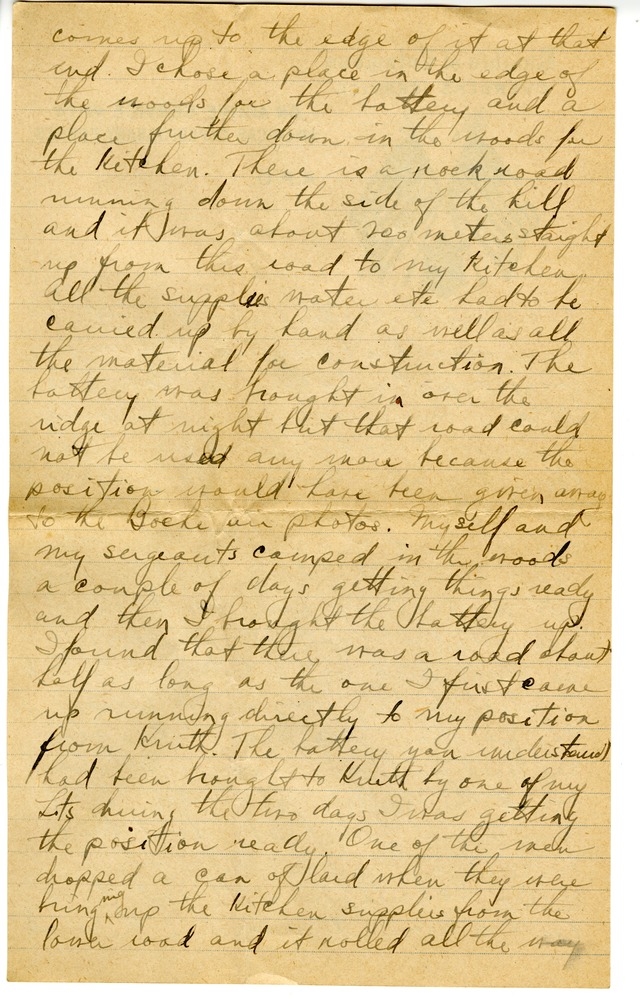 comes up to the edge of it at that
end. I chose a place in the edge of
the woods for the battery and a
place further down in the woods for
the Kitchen. There is a rock road
running down the side of the hill
and it was about 200 meters staight
up from this road to my Kitchen.
All the supplies water etc had to be
carried up by hand as well as all
the material for construction. The
battery was brought in over the
ridge at night but that road could
not be used any more because the
position would have been given away
to the Boche air photos. Myself and
my sergeants camped in the woods
a couple of days getting things ready
and then I brought the battery up.
I found that there was a road about
half as long as the one I first came
up running directly to my position
from Kruth. The battery you understand
had been brought to Kruth by one of my
Lts during the two days I was getting
the position ready. One of the men
dropped a can of lard when they were
bringing up the Kitchen supplies from the
lower road and it rolled all the way